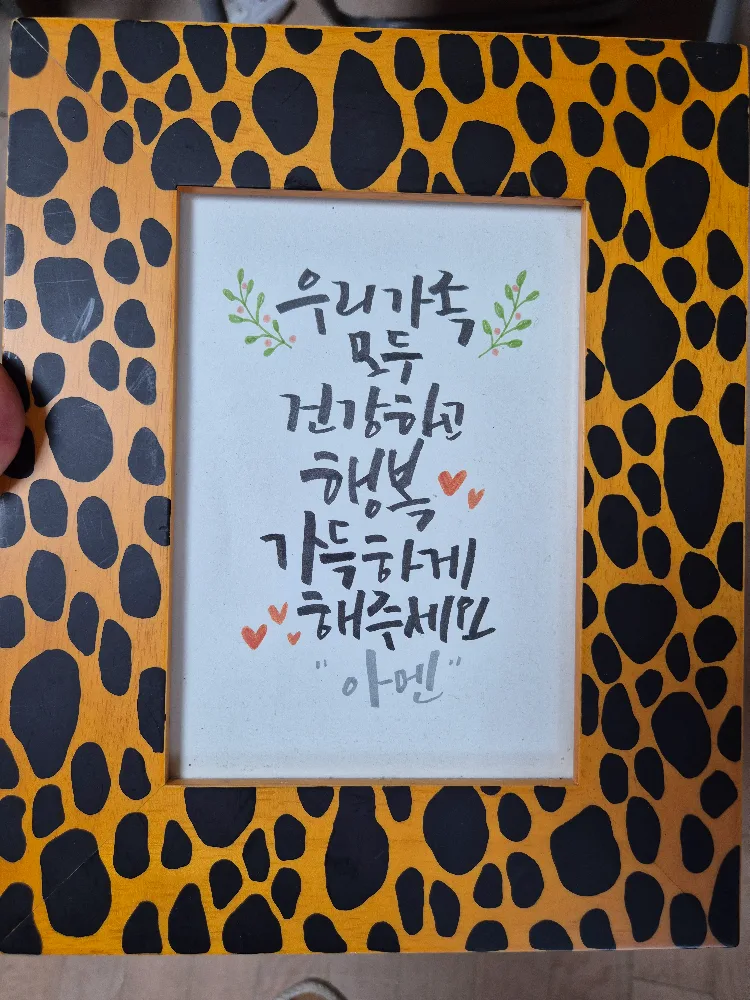 우리가족
모두
건강하고
행복
가득하게
해주세요
"아멘"